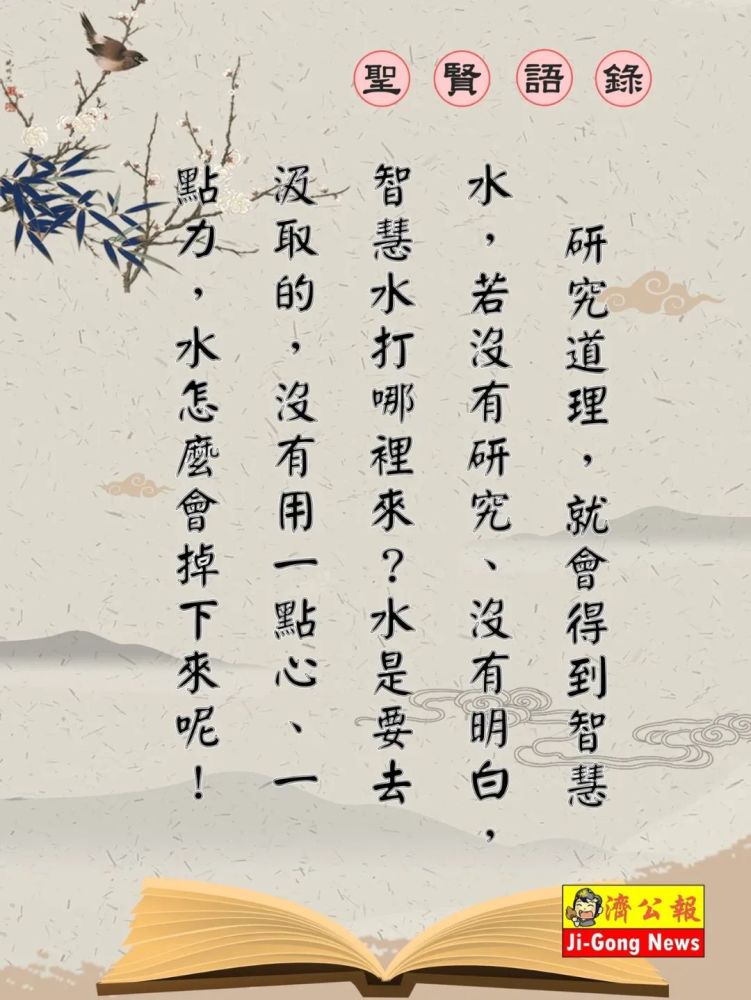 聖賢語錄
研究道理，就會得到智慧
水，若沒有研究、沒有明白，
智慧水打哪裡來？水是要去
汲取的，沒有用一點心、一
點力，水怎麼會掉下來呢！
濟公報
Ji-Gong News